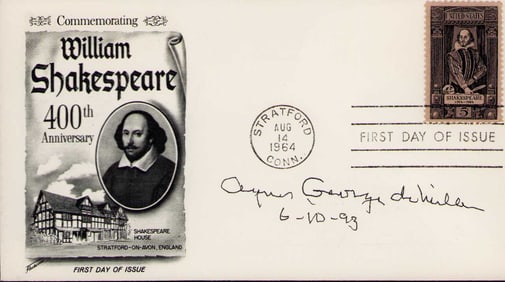 Commemorating
William
Shakespeare
400th
Anniversary
SHAKESPEARE
HOUSE
STRATFORD-ON-AVON, ENGLAND
FIRST DAY OF ISSUE
UNITED STATES
SHAKESPEARE
1564-1964
5
STRATFORD
AUG
14
1964
CONN.
FIRST DAY OF ISSUE
Agnes George de Mille
6-10-93